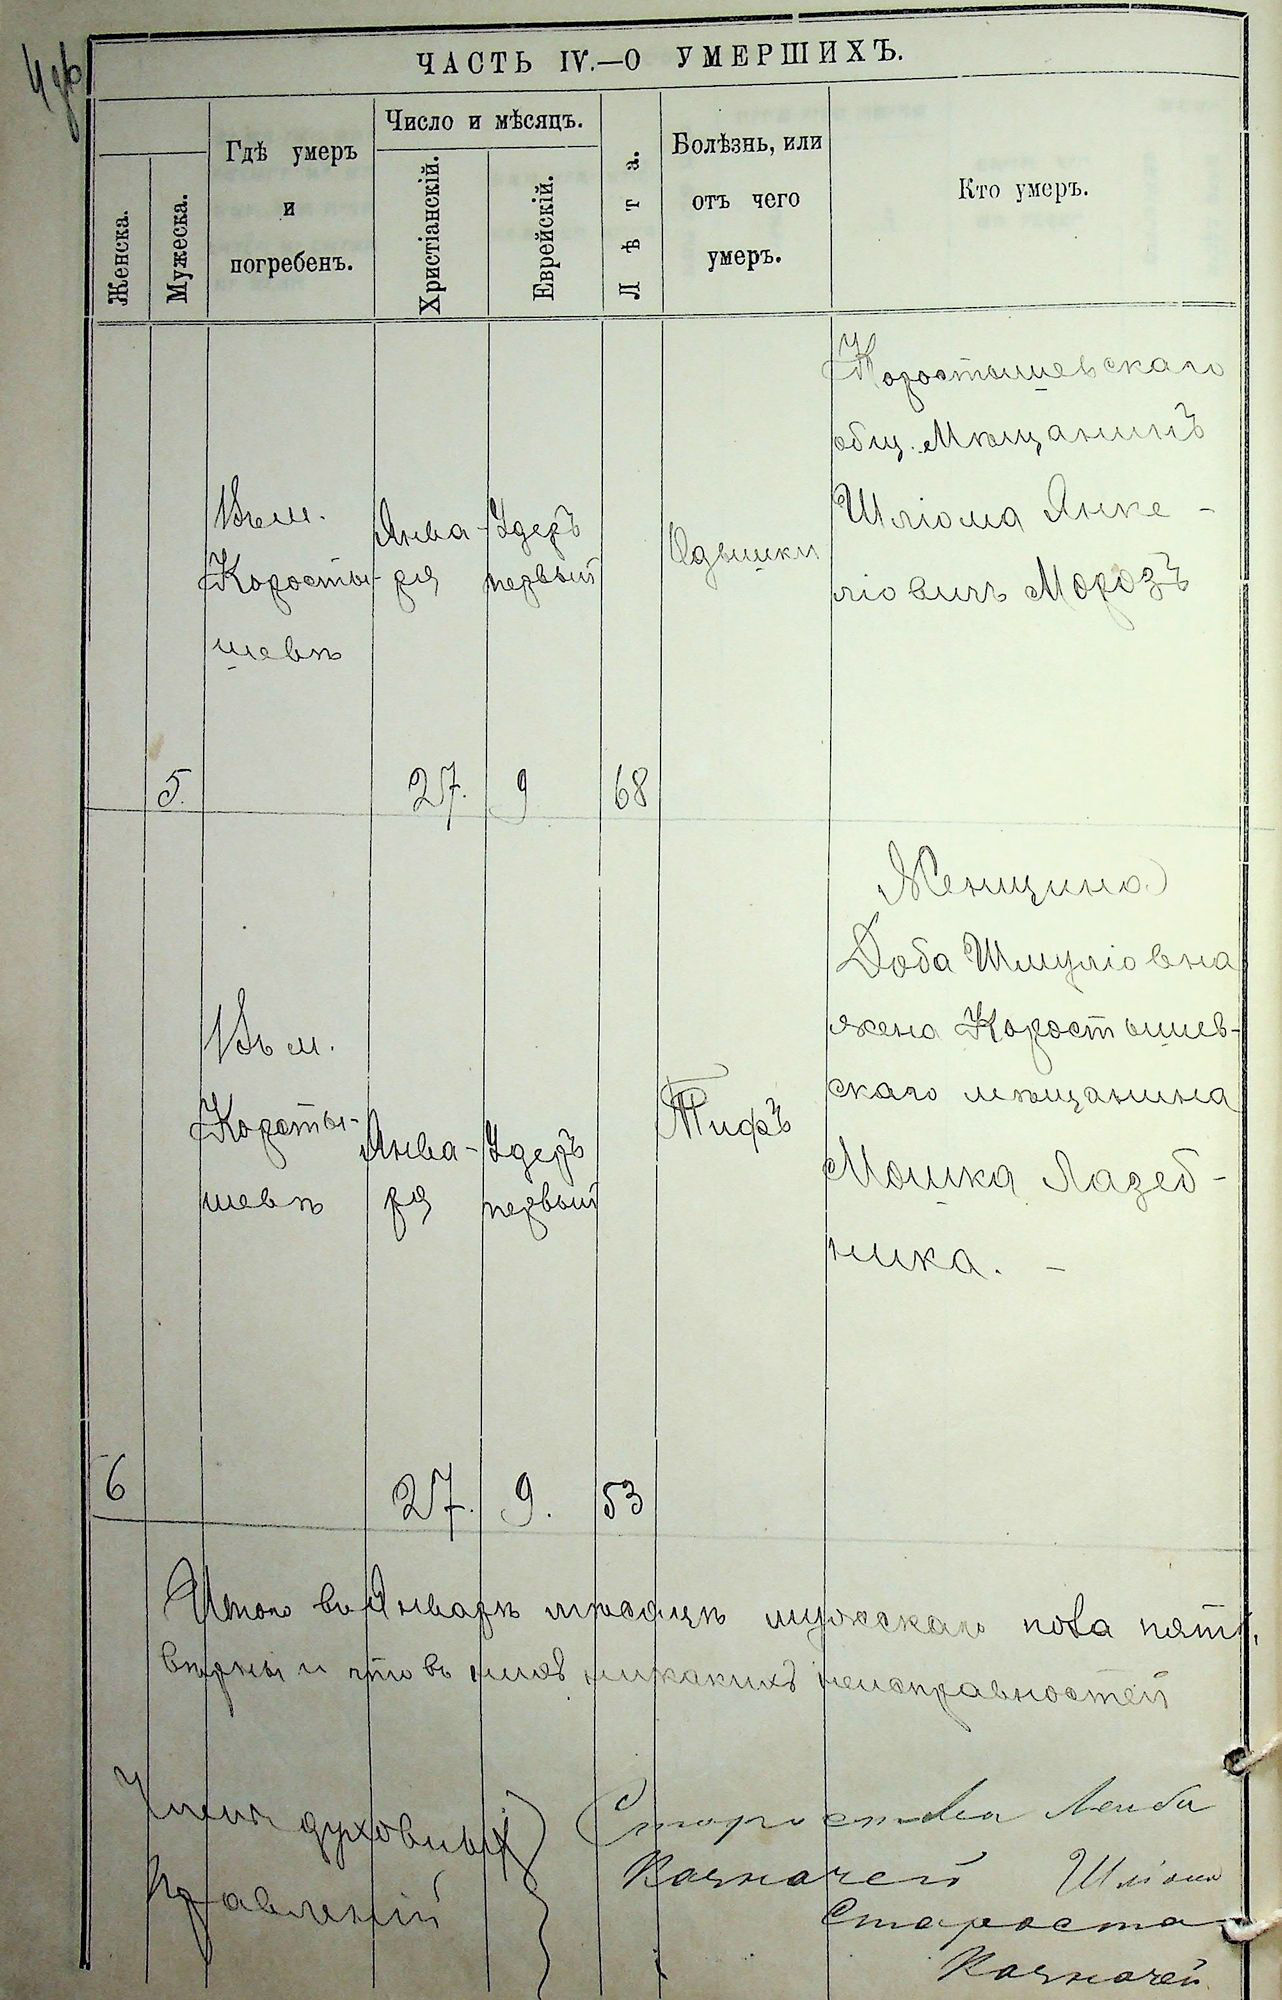 ЧАСТЬ IV.—О УМЕРШИХЪ.
Женска.
Мужеска.
Гдѣ умеръ
и
погребенъ.
Число и мѣсяцъ.
Христіанскій.
Еврейскій.
Лѣта.
Болѣзнь, или
отъ чего
умеръ.
Кто умеръ.
5.
Въ м.
Коросты-
шевѣ
Янва-
ря
27.
Удеръ
первый
9
68
Одышки
Коростышевскаго
общ. Мѣщанинъ
Шліома Янке-
ліовичъ Морозъ
6
Въ м.
Коросты-
шевѣ
Янва-
ря
27.
Удеръ
первый
9.
53
Тифъ
Женщина
Доба Шмуліовна
жена Коростышев-
скаго мѣщанина
Мошка Лазеб-
ника. —
Итого въ Январѣ мѣсяцѣ мужскаго пола пять,
вѣрны и что въ никакихъ неисправностей
духовныхъ
Правленій
Лейба
Казначей Шліома
Староста
Казначей